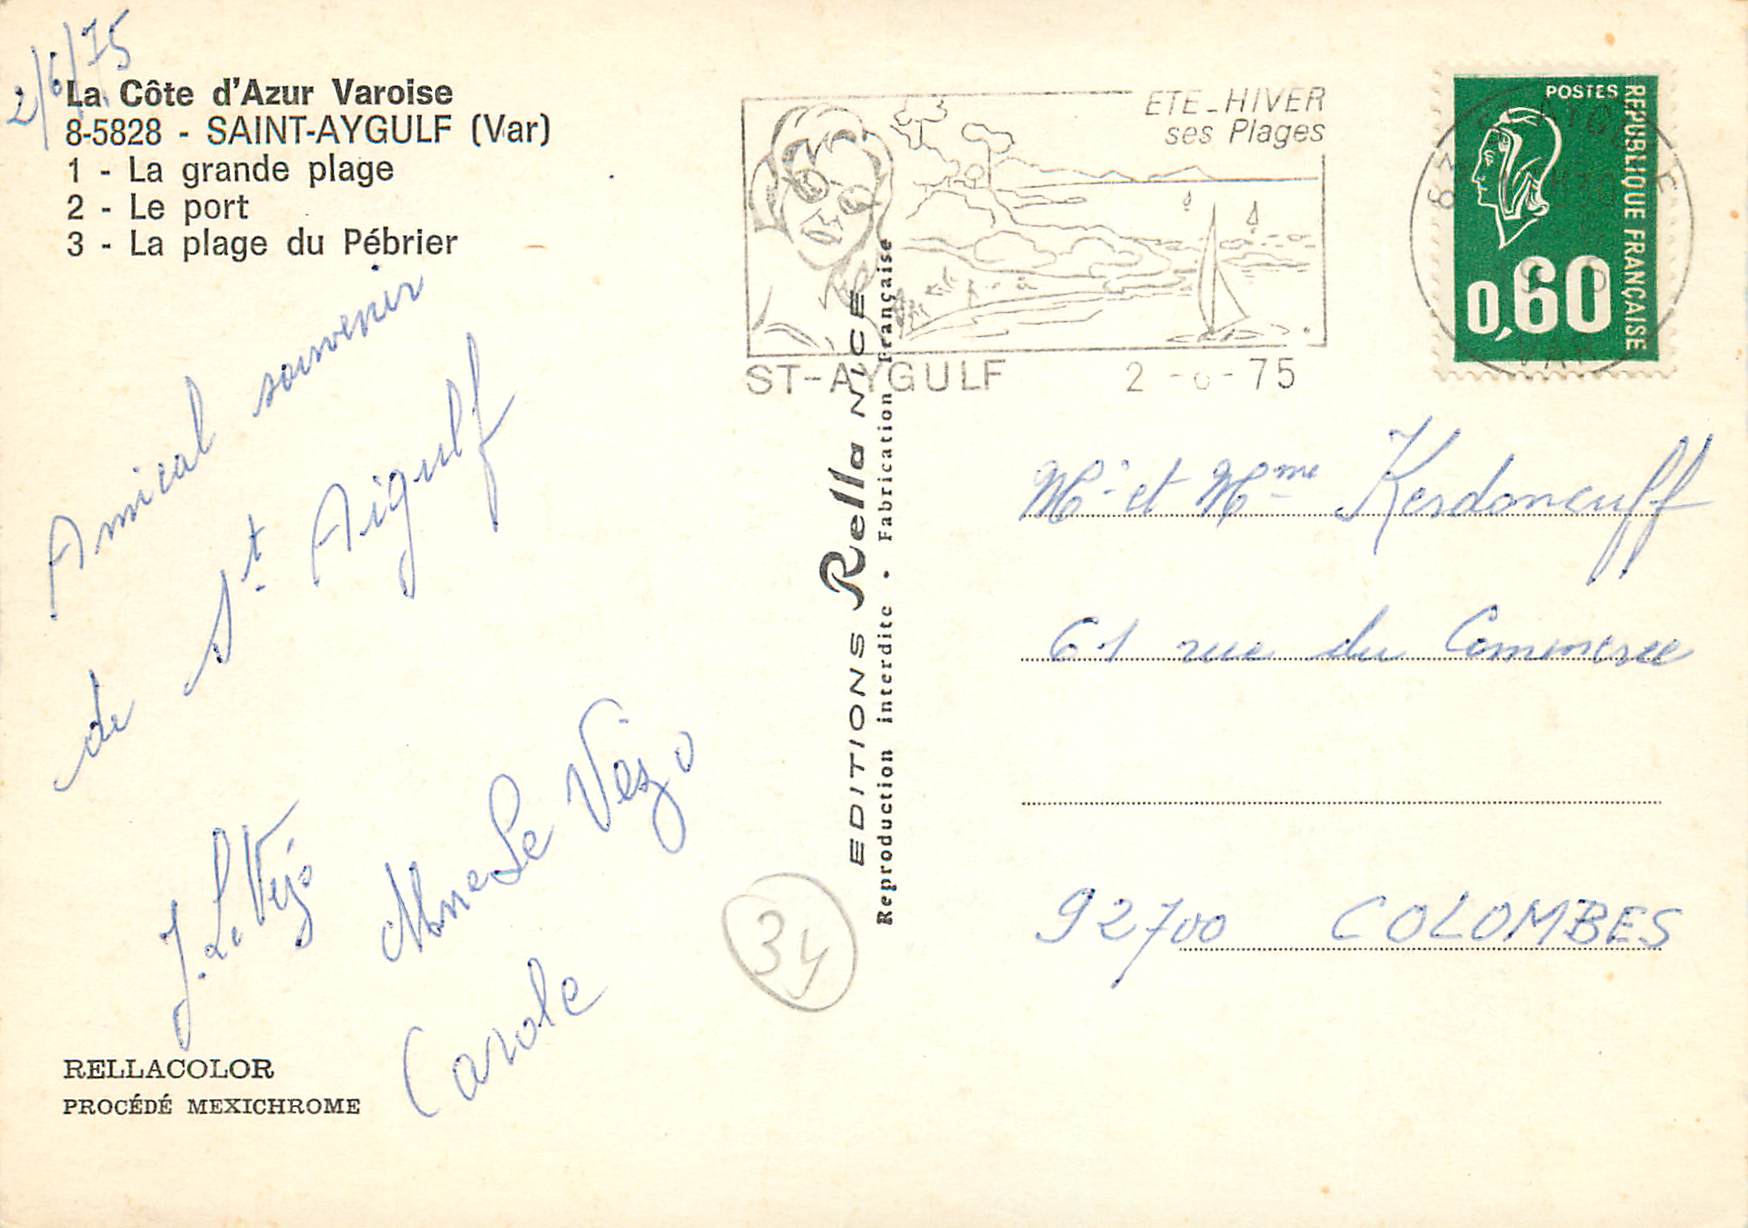 2/6/75
La Côte d'Azur Varoise
8-5828 - SAINT-AYGULF (Var)
1 - La grande plage
2 - Le port
3 - La plage du Pébrier
Amical souvenir
de St Aigulf
J. Le Vézo
Mme Le Vézo
Carole
RELLACOLOR
PROCÉDÉ MEXICHROME
EDITIONS Rella NICE
Reproduction interdite • Fabrication Française
34
ETE_HIVER
ses Plages
ST-AYGULF 2 -6-75
POSTES
REPUBLIQUE FRANÇAISE
0,60
83
VAR
Mr et Mme Kerdoncuff
61 rue du Commerce
92700 COLOMBES